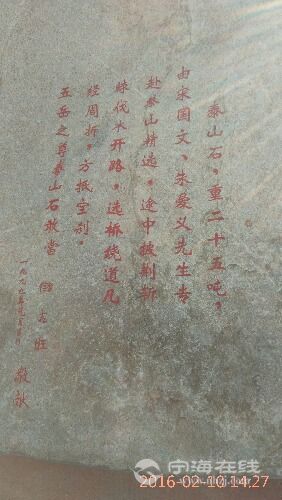 泰山石，重二十五吨，
由宋国文、朱爱义先生专
赴泰山精选。途中披荆斩
棘伐木开路，选桥绕道几
经周折，方抵宝刹。
五岳之尊泰山石敢当
敬献
宁海在线
2016-02-10 14:27